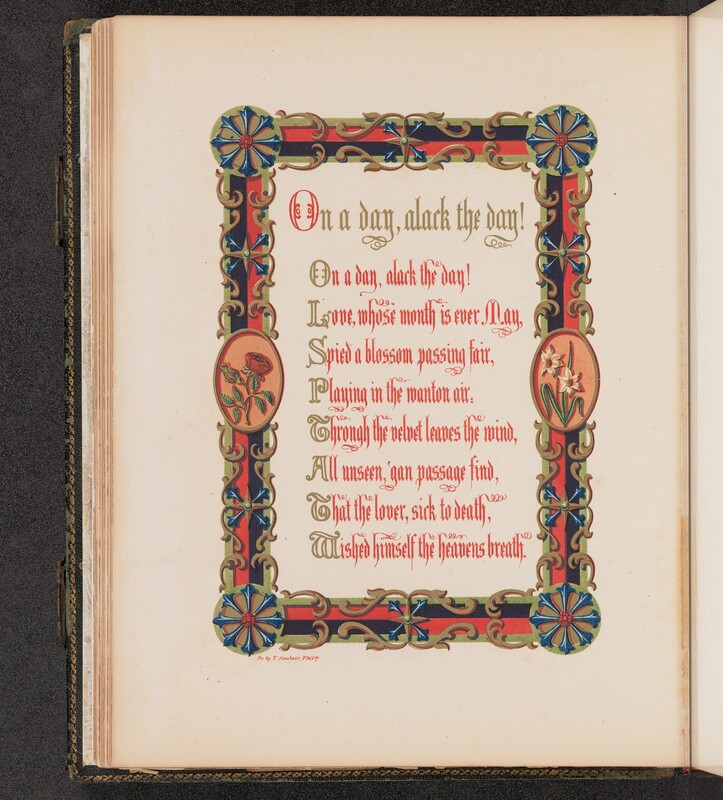 On a day, alack the day!
On a day, alack the day!
Love, whose month is ever May,
Spied a blossom passing fair,
Playing in the wanton air:
Through the velvet leaves the wind,
All unseen, 'gan passage find,
That the lover, sick to death,
Wished himself the heavens breath.
by T. Sinclair, Phila